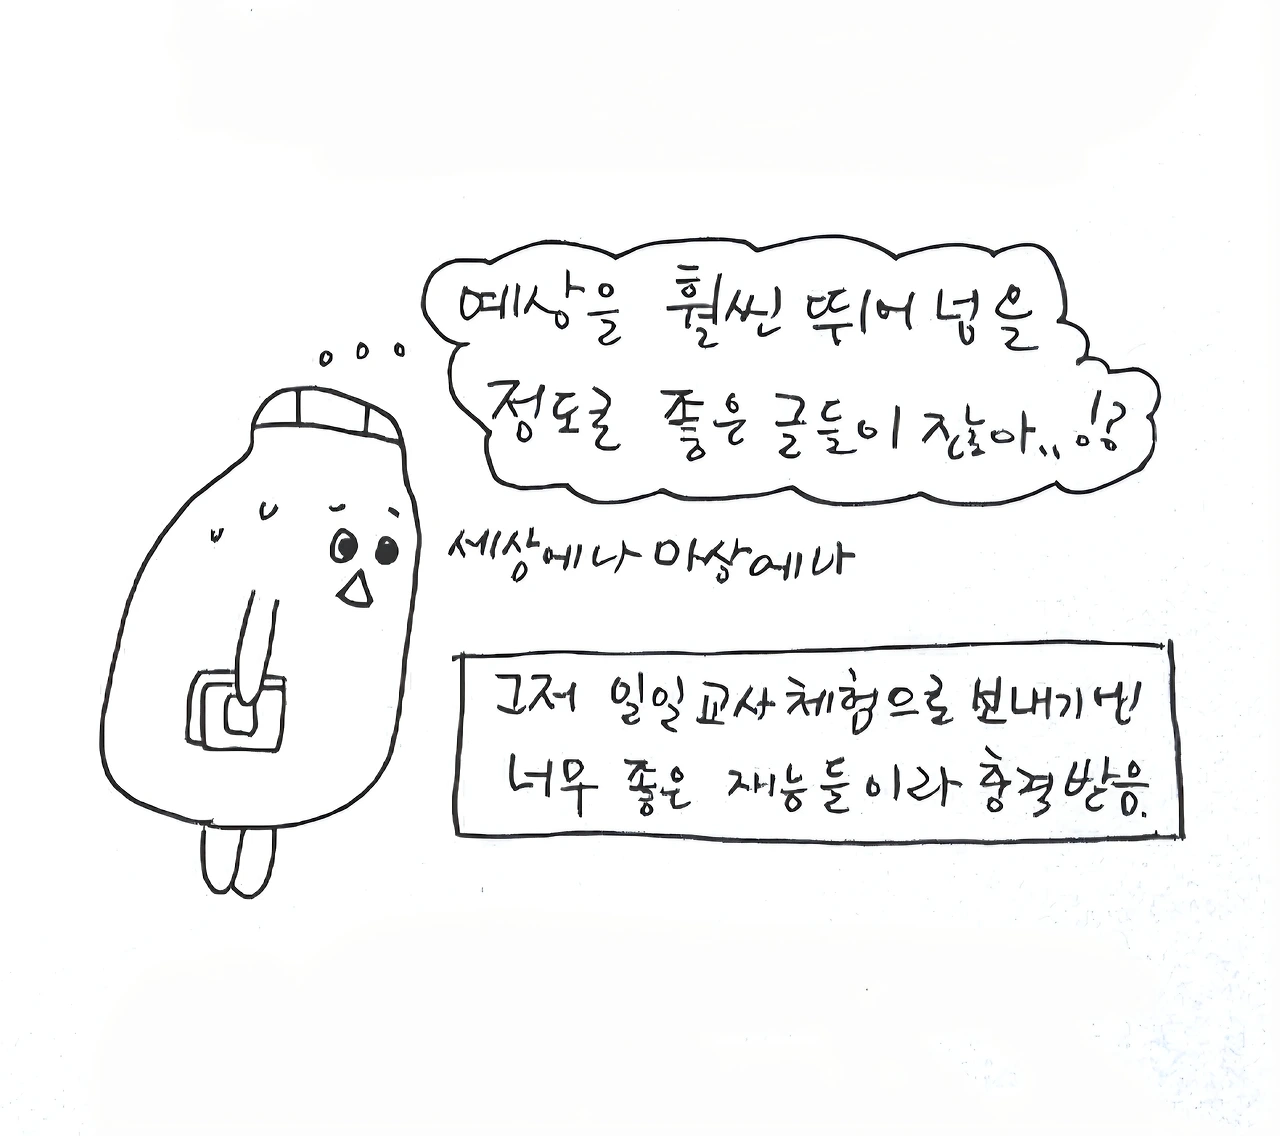 예상을 훨씬 뛰어 넘을
정도로 좋은 글들이 잖아..!?
세상에나 마상에나
그저 일일교사 체험으로 보내기엔
너무 좋은 재능들이라 충격받음.